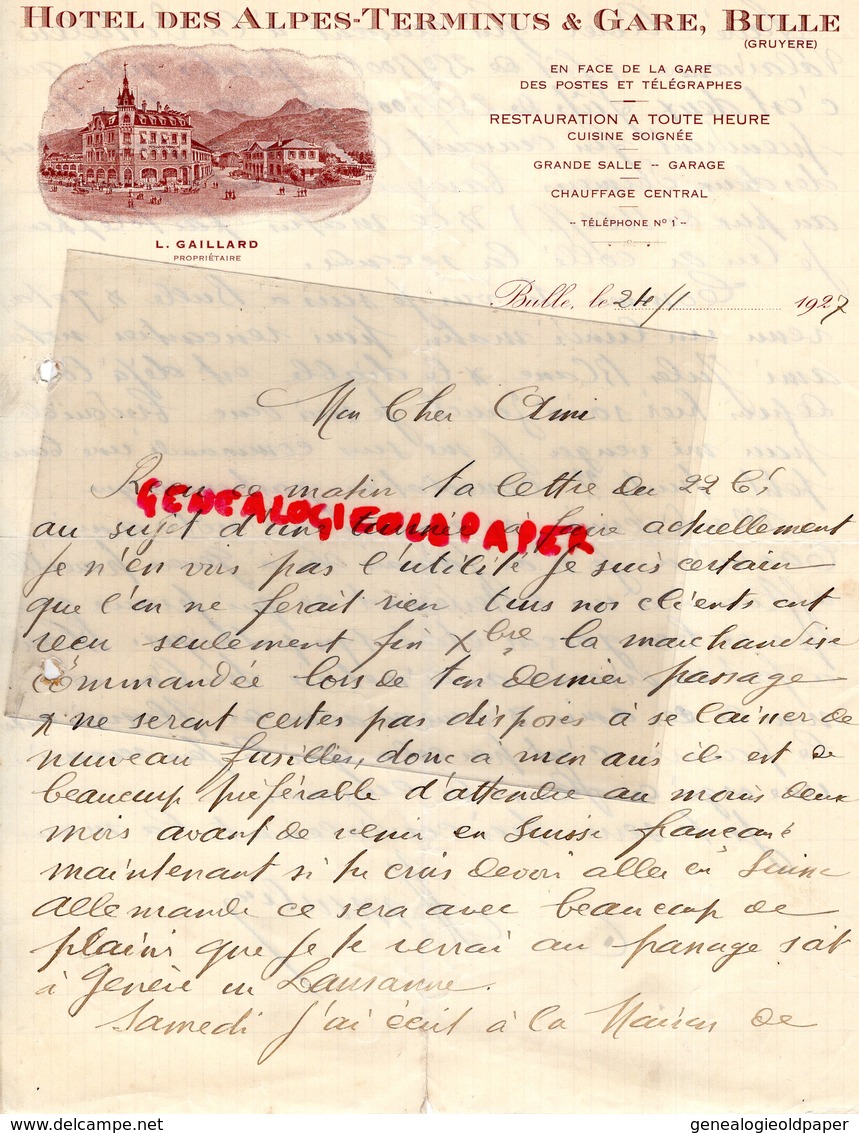 HOTEL DES ALPES-TERMINUS & GARE, BULLE
(GRUYERE)
EN FACE DE LA GARE
DES POSTES ET TÉLÉGRAPHES
RESTAURATION A TOUTE HEURE
CUISINE SOIGNÉE
GRANDE SALLE -- GARAGE
CHAUFFAGE CENTRAL
-- TÉLÉPHONE No 1 --
L. GAILLARD
PROPRIÉTAIRE
Bulle, le 24/1 1927
Mon Cher Ami
Reçu ce matin ta lettre du 22 Ct
GENEALOGIEOLDPAPER
au sujet d'une tournée à faire actuellement
Je n'en vois pas l'utilité Je suis certain
que l'on ne ferait rien tous nos clients ont
recu seulement fin Xbre la marchandise
commandée lors de ton dernier passage
& ne seront certes pas disposés à se laisser de
nouveau fusilles, donc à mon avis il est de
beaucoup préférable d'attendre au moins deux
mois avant de venir en Suisse francaise
maintenant si tu crois devoir aller en Suisse
Allemande ce sera avec beaucoup de
plaisir que Je te verrai au passage soit
à Genève ou Lausanne.
Samedi j'ai écrit à la Maison de
genealogieoldpaper
delcampe.net